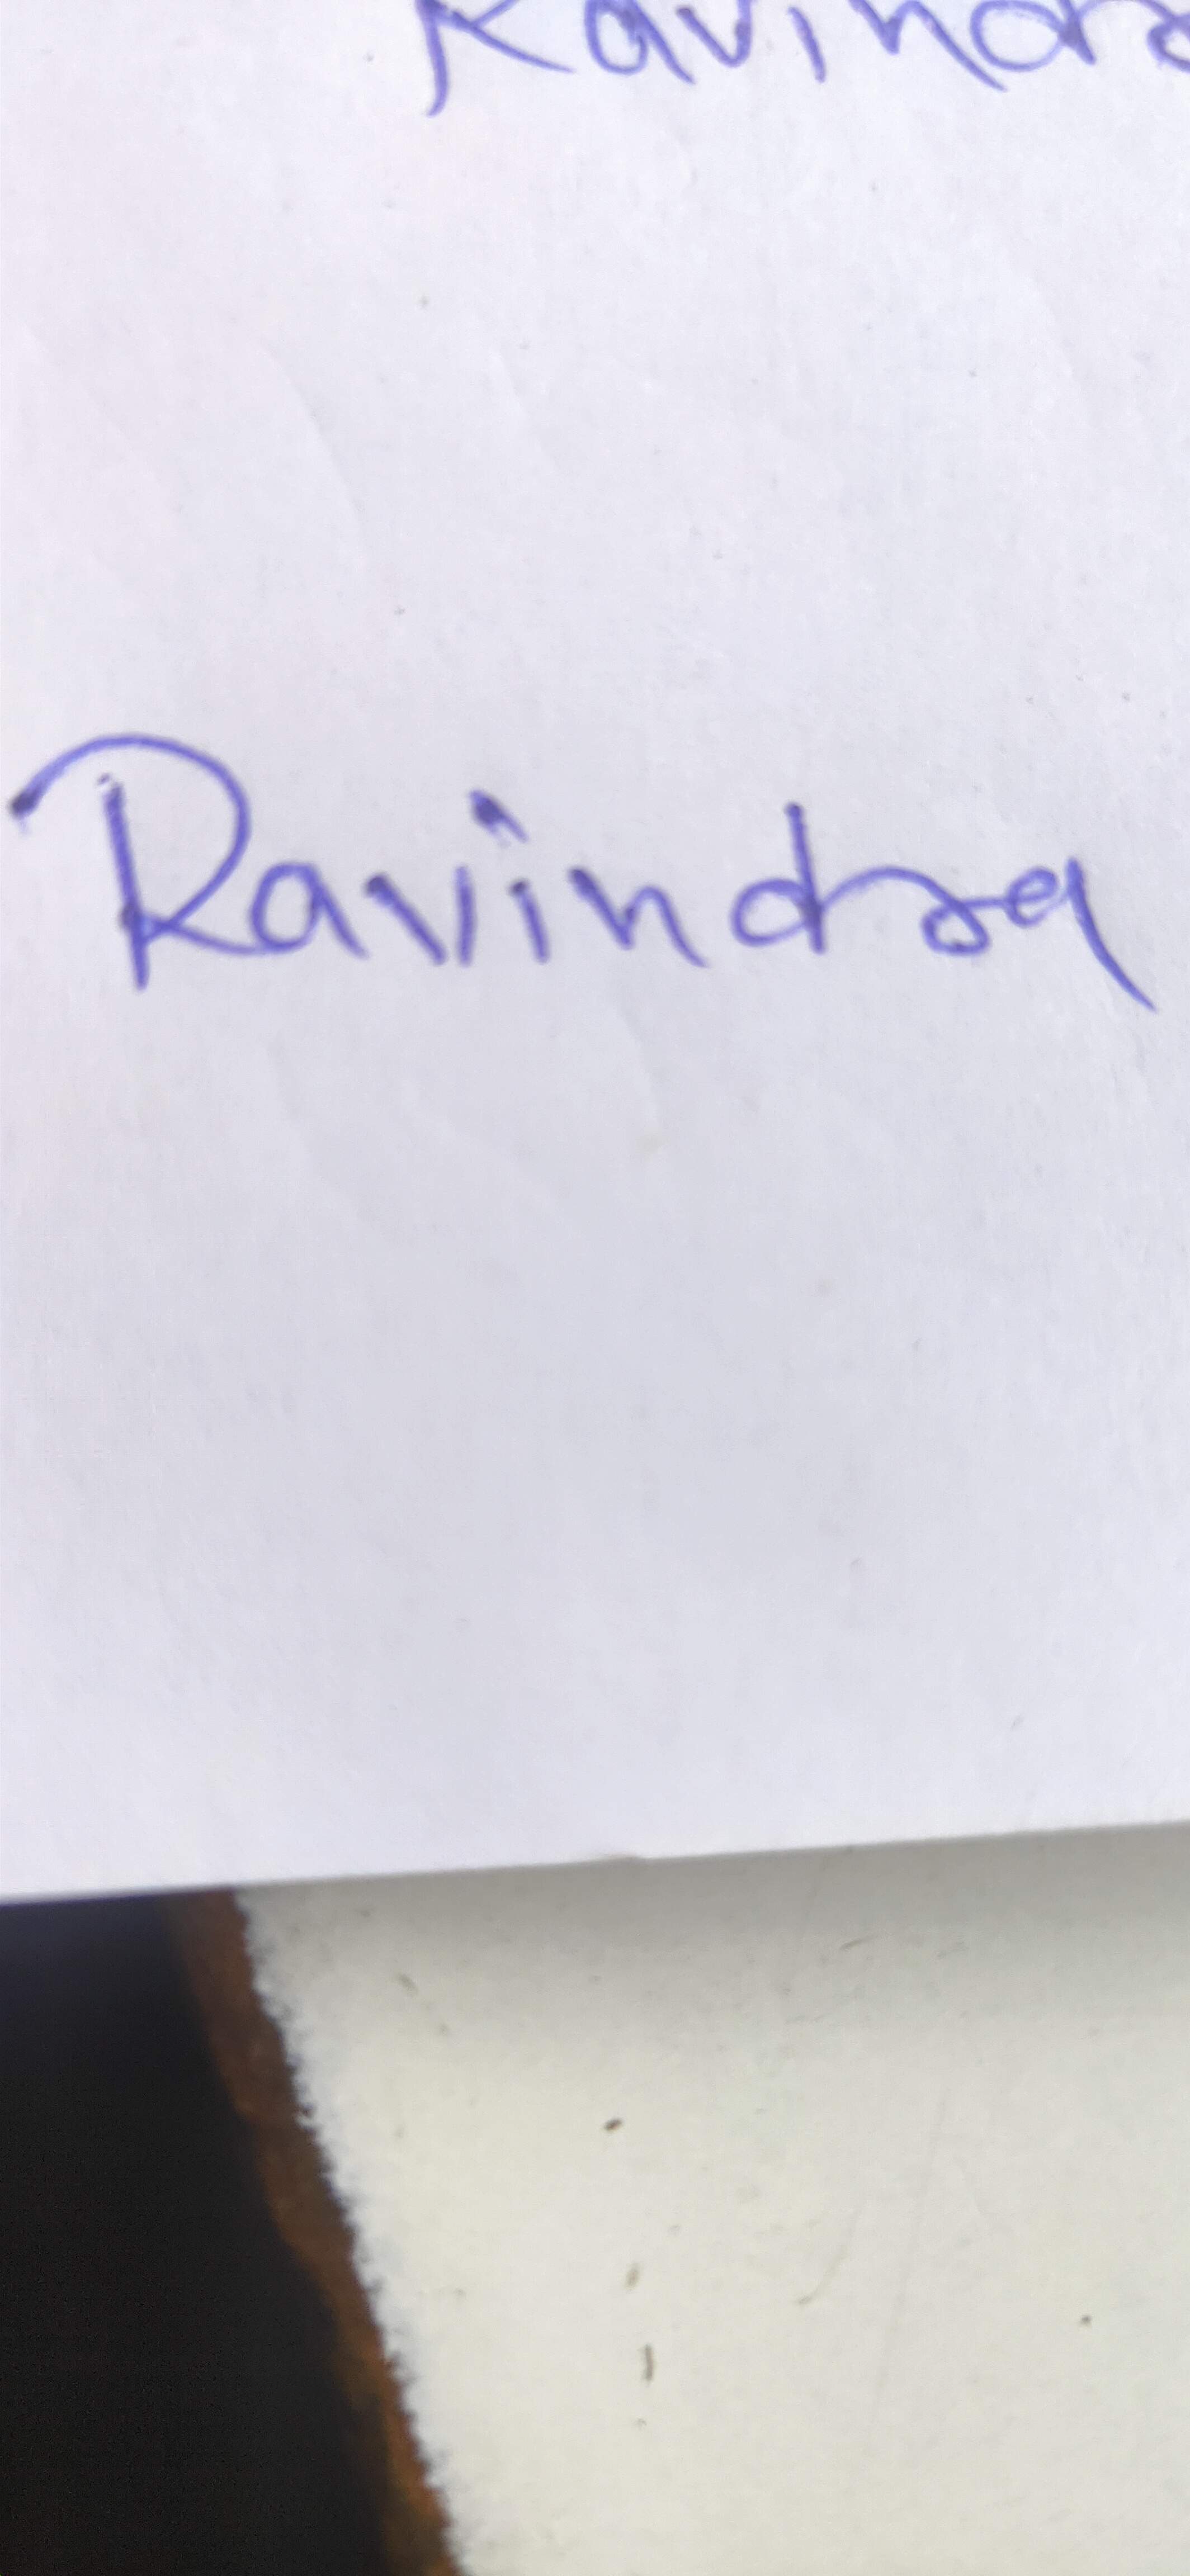 Ravindra
Ravindra